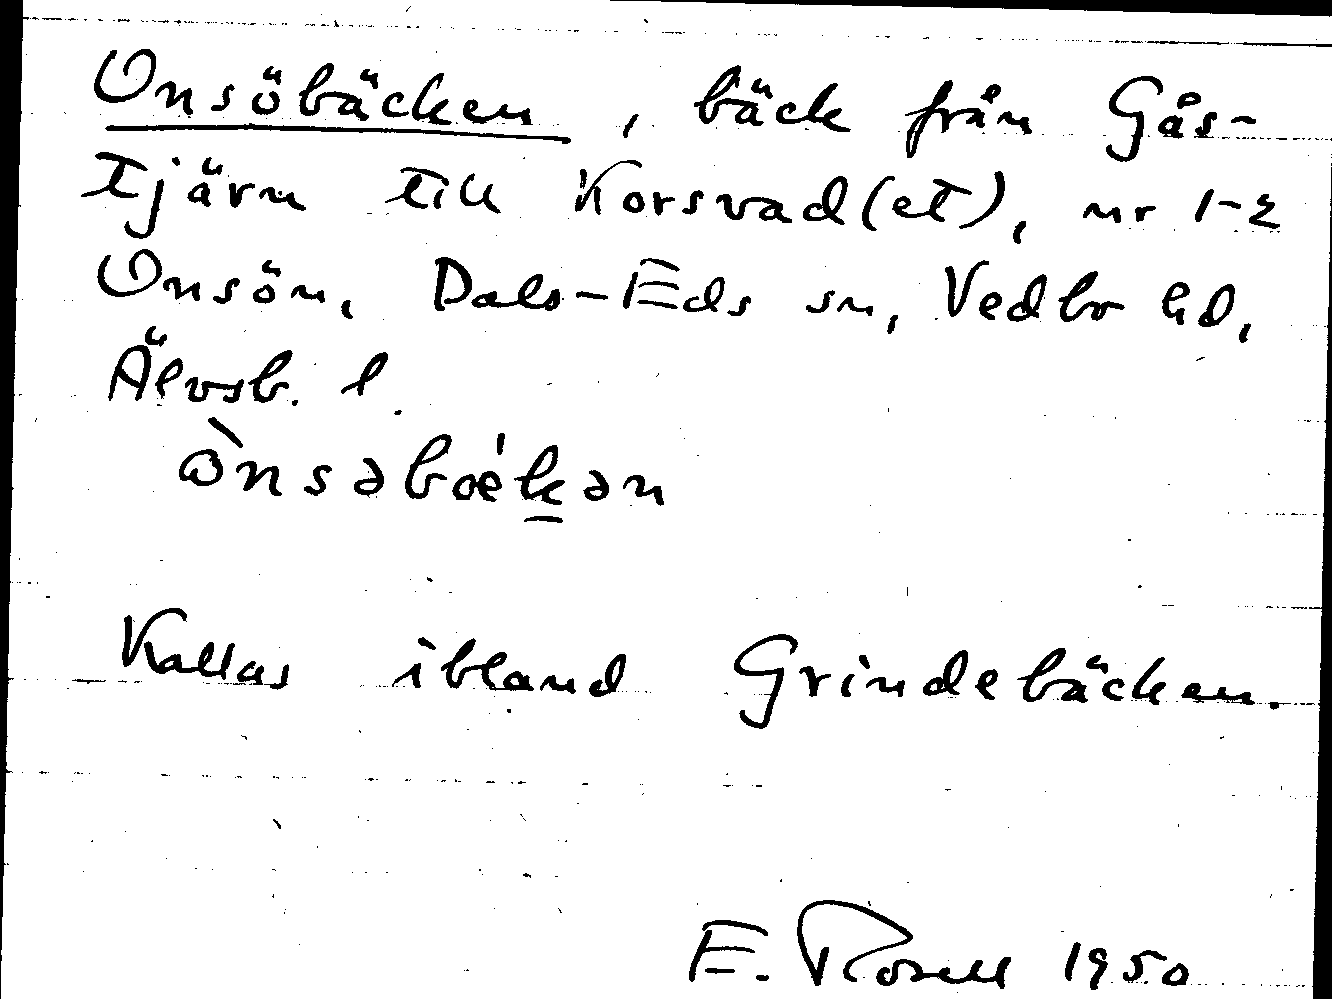 Onsöbäcken, bäck från Gås-
tjärn till Korsvad(et), nr 1-2
Onsön, Dals-Eds sn, Vedbo hd,
Älvsb. l.
ònsəbœ́k̲ən
Kallas ibland Grindebäcken.
E. Rosell 1950